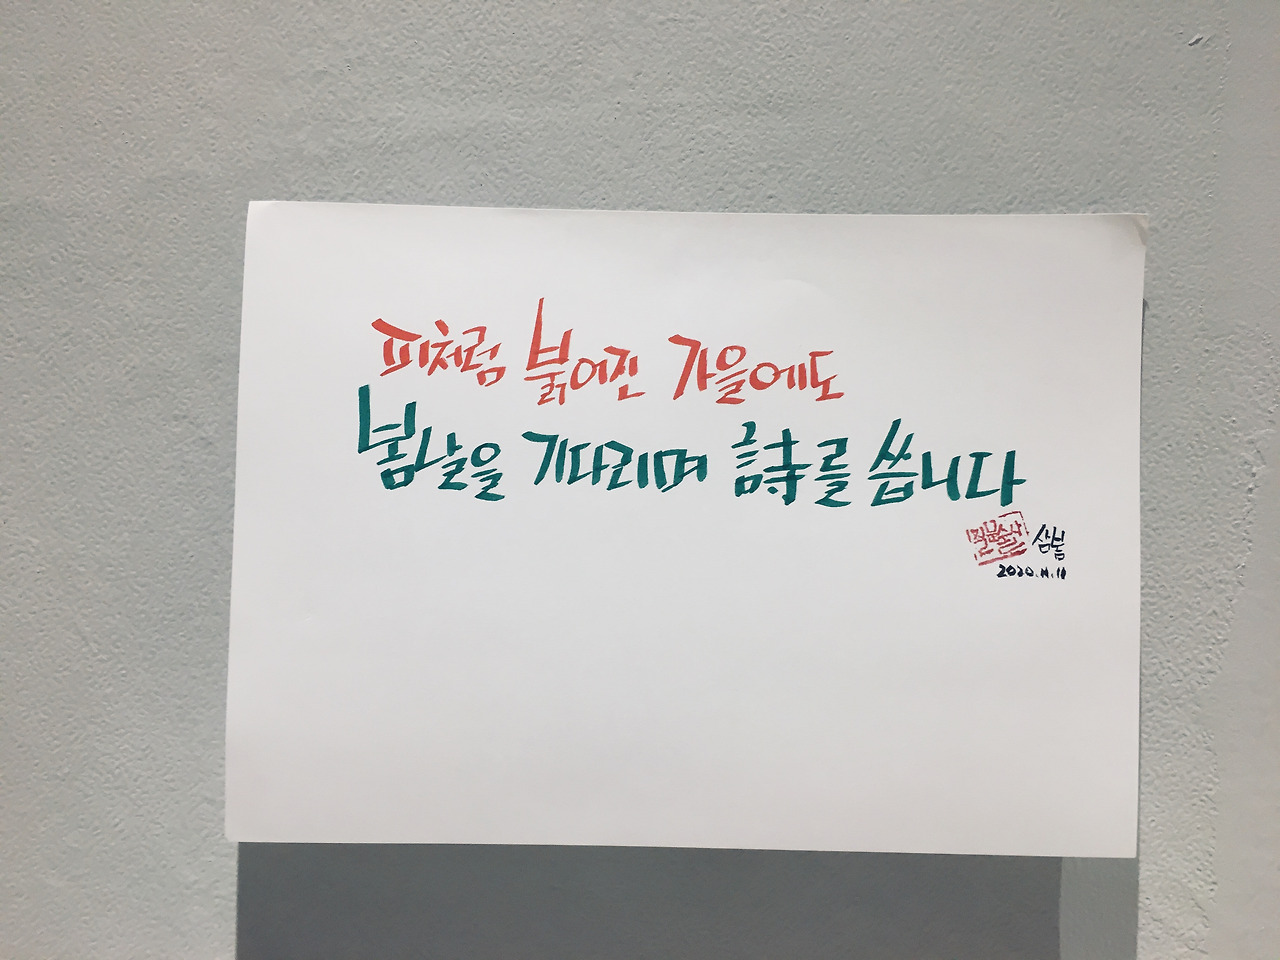 피처럼 붉어진 가을에도
봄날을 기다리며 詩를 씁니다
삼봄
2020.11.11